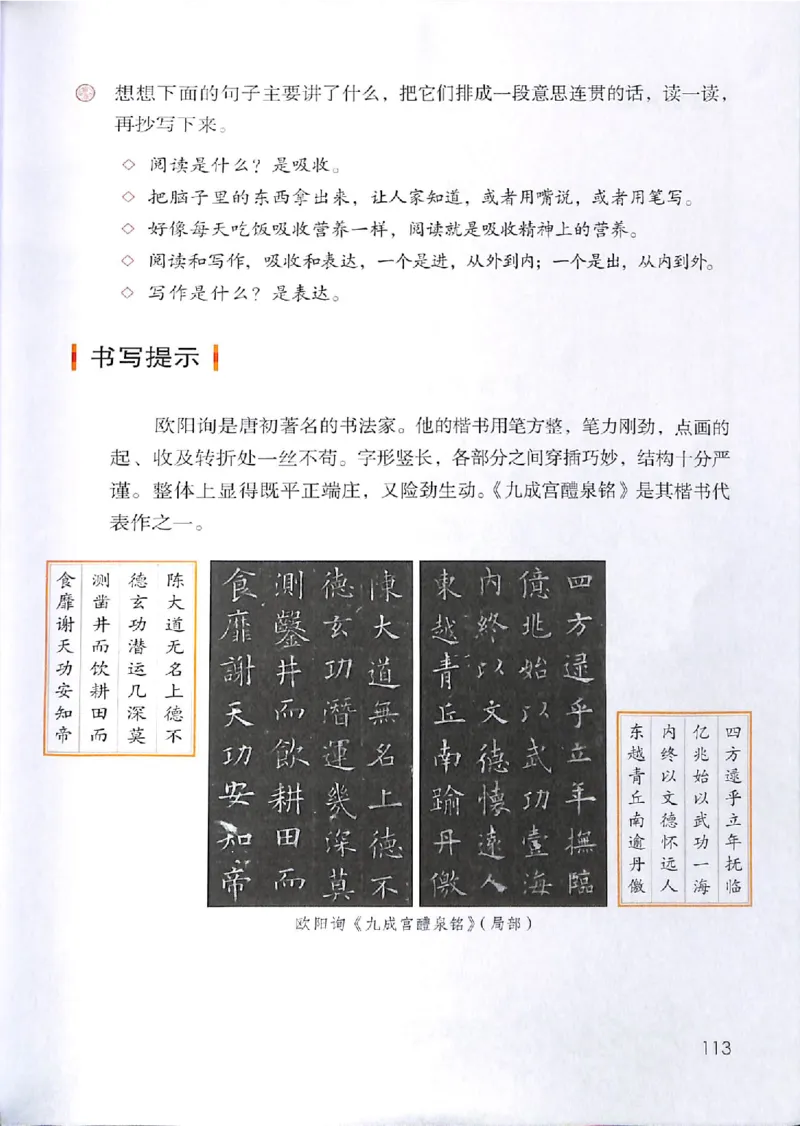 想想下面的句子主要讲了什么，把它们排成一段意思连贯的话，读一读，
再抄写下来。
◇ 阅读是什么？是吸收。
◇ 把脑子里的东西拿出来，让人家知道，或者用嘴说，或者用笔写。
◇ 好像每天吃饭吸收营养一样，阅读就是吸收精神上的营养。
◇ 阅读和写作，吸收和表达，一个是进，从外到内；一个是出，从内到外。
◇ 写作是什么？是表达。
书写提示
欧阳询是唐初著名的书法家。他的楷书用笔方整，笔力刚劲，点画的
起、收及转折处一丝不苟。字形竖长，各部分之间穿插巧妙，结构十分严
谨。整体上显得既平正端庄，又险劲生动。《九成宫醴泉铭》是其楷书代
表作之一。
陈大道无名上德不
德玄功潜运几深莫
测凿井而饮耕田而
食靡谢天功安知帝
陳大道無名上德不
德玄功潛運幾深莫
測鑿井而飲耕田而
食靡謝天功安知帝
四方逯乎立年撫臨
億兆始以武功壹海
内終以文德懷遠人
東越青丘南踰丹儌
四方逯乎立年抚临
亿兆始以武功一海
内终以文德怀远人
东越青丘南逾丹儌
欧阳询《九成宫醴泉铭》（局部）
113